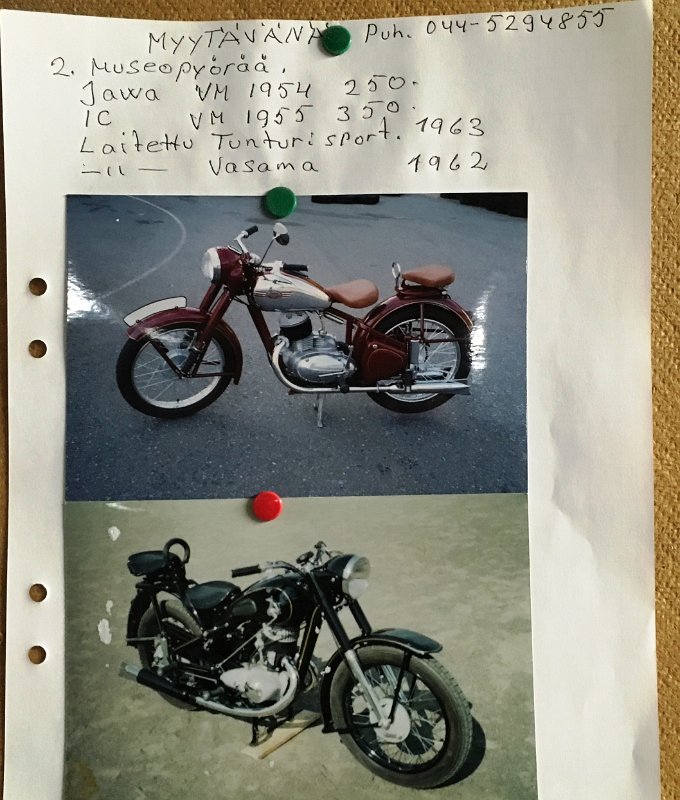 MYYTÄVÄNÄ Puh. 044-5294855
2. Museopyörää.
Jawa VM 1954 250.
IC VM 1955 350.
Laitettu Tunturisport. 1963
—11— Vasama 1962